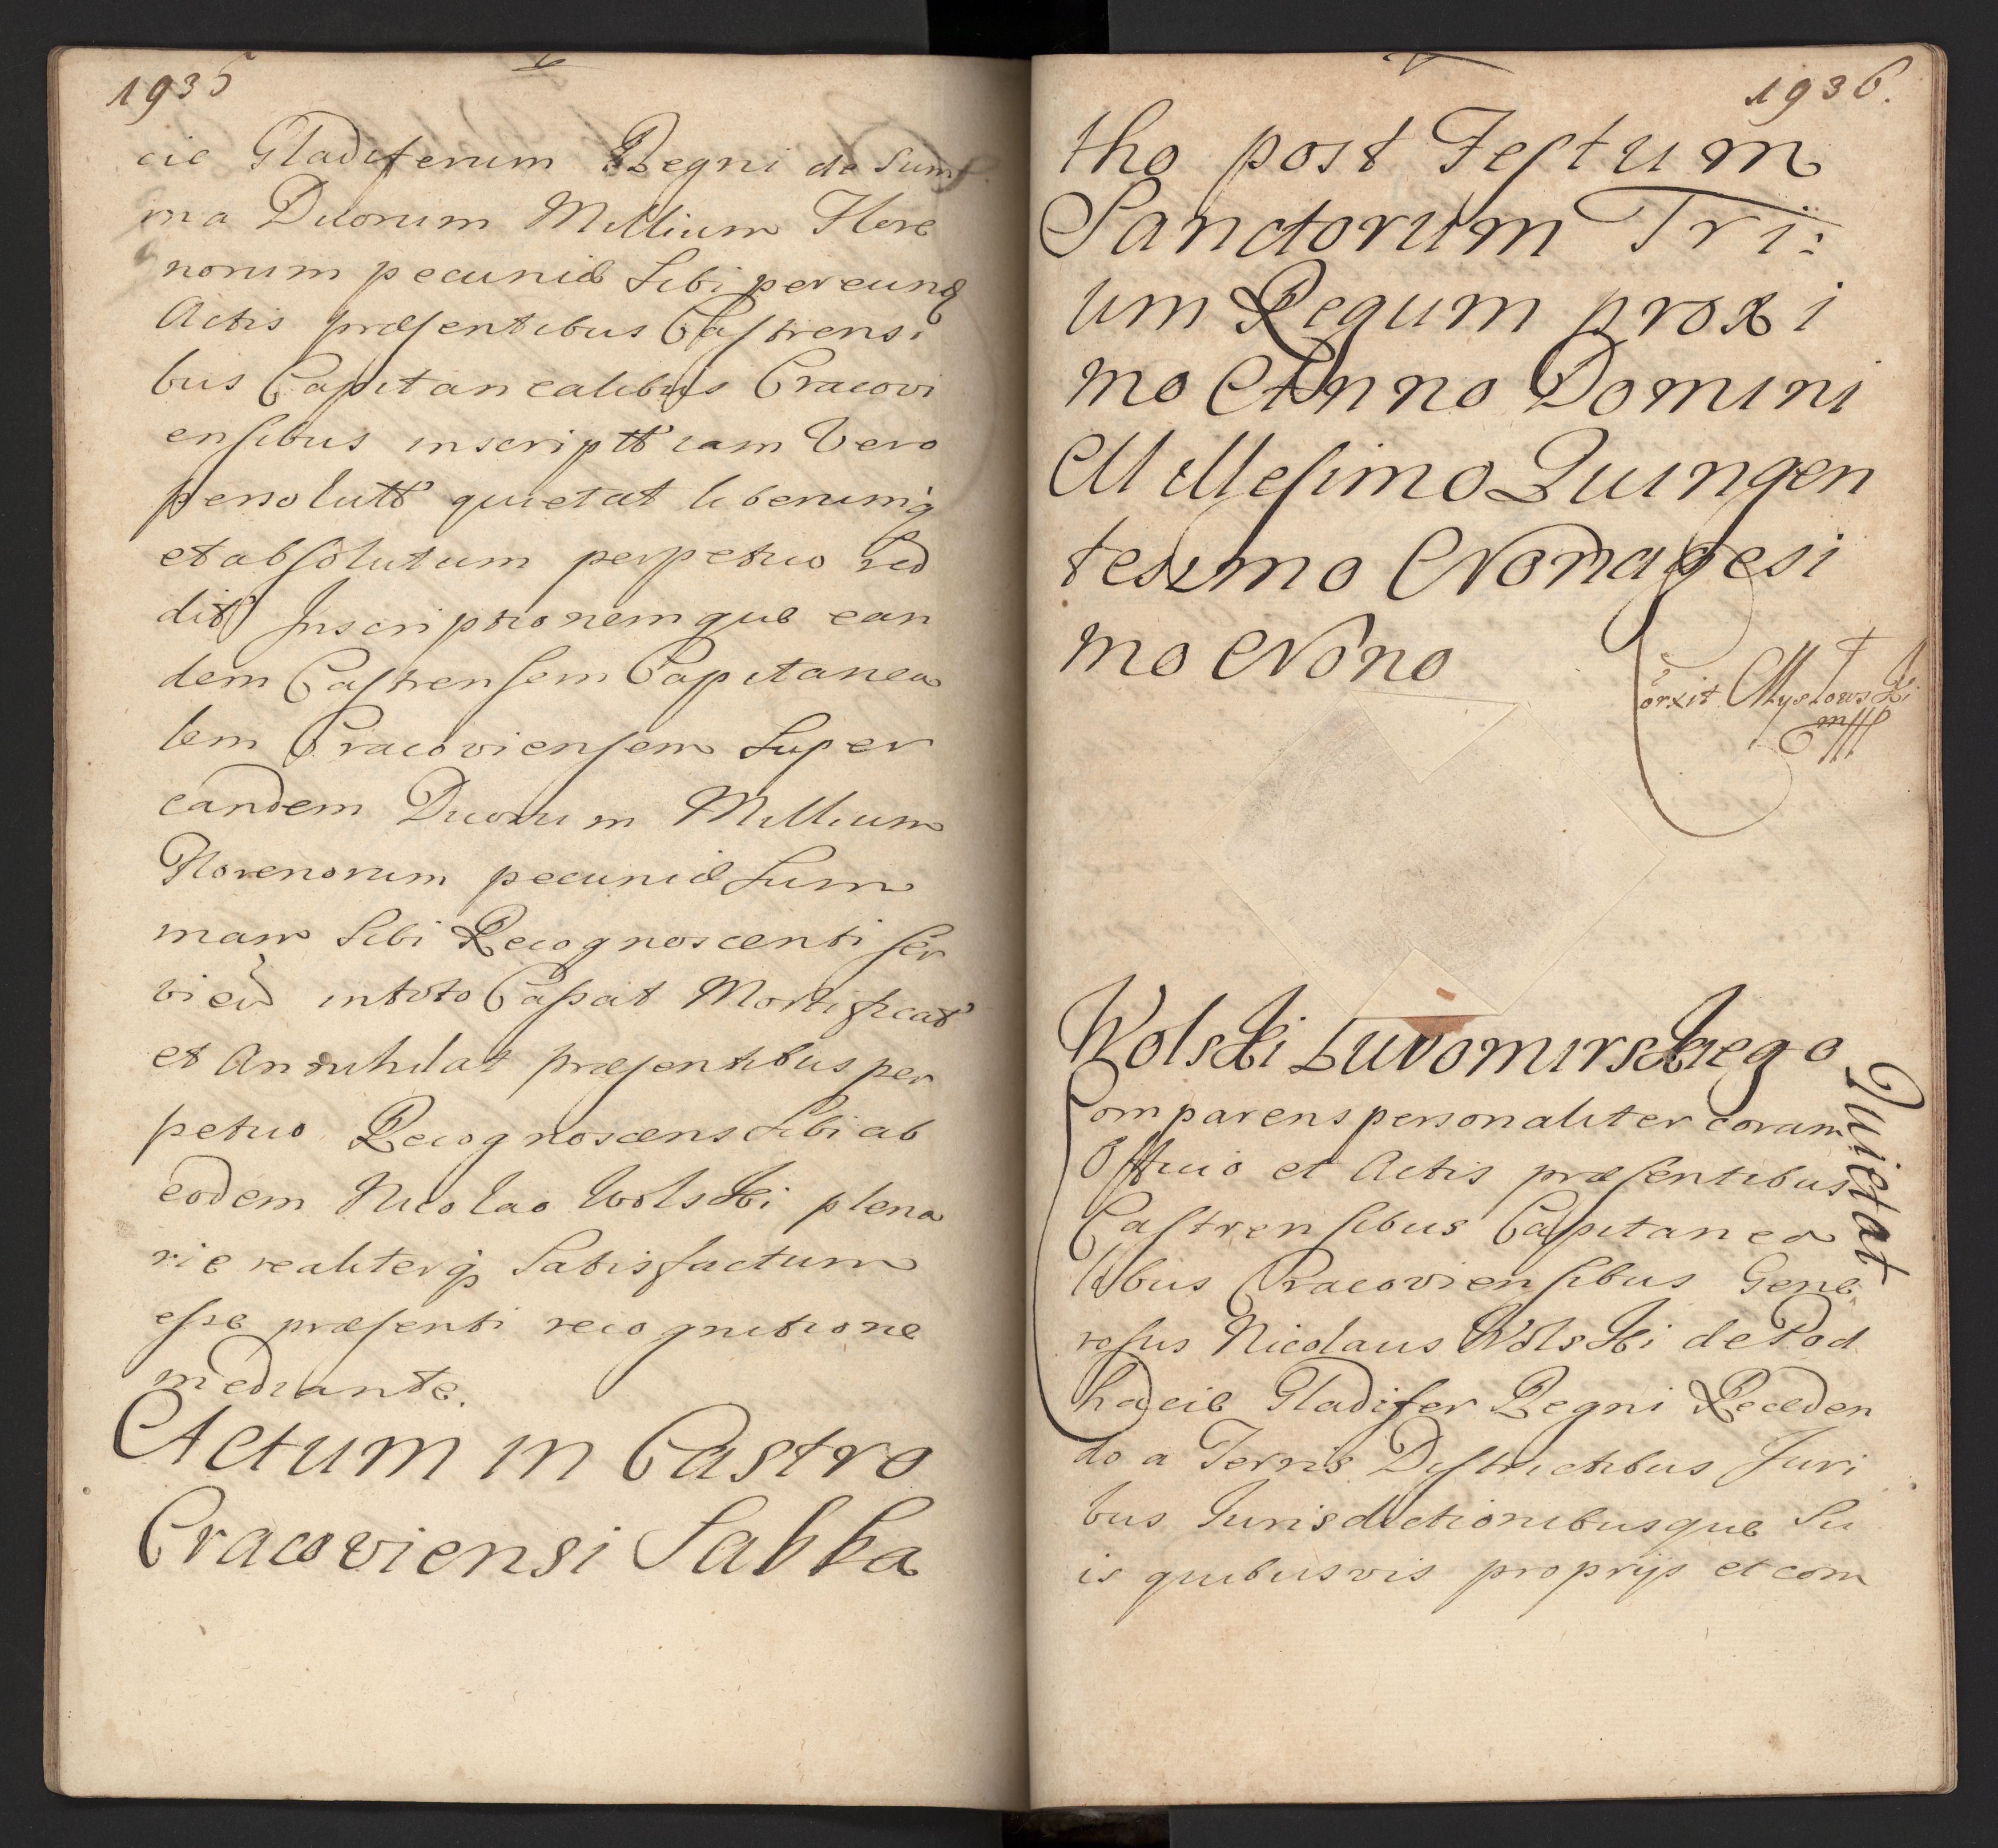 1935
cie Gladiferum Regni de Sum
ma Duorum Millium Flore
norum pecuniæ Sibi per eunđ
Actis præsentibus Castrensi
bus Capitanealibus Cracovi
ensibus inscriptt iam Vero
persolutt quietat liberumq
et absolutum perpetuo red
dit Inscriptionemque ean
dem Castrensem Capitanea
lem Cracoviensem Super
eandem Duorum Millium
Florenorum pecuniæ Sum
mam Sibi Recognoscenti ser
vien intoto Cassat Mortificat
et Annihilat præsentibus per
petuo Recognoscens Sibi ab
eodem Nicolao Wolski plena
rie realiterq Satisfactum
esse præsenti recognitione
mediante.
Actum in Castro
Cracoviensi Sabba
1936.
tho post Festum
Sanctorum Tri:
um Regum proxi
mo Anno Domini
Millesimo Quingen
tesimo Nonagesi
mo Nono
Corxit Myslowski
mpp
Wolski Luvomirskiego
Quietat
Comparens personaliter coram
Officio et Actis præsentibus
Castrensibus Capitanea
libus Cracoviensibus Gene
rosus Nicolaus Wolski de Pod
hacie Gladifer Regni Receden
do a Terris Districtibus Juri
bus Jurisdictionibusque Su
is quibusvis proprijs et com